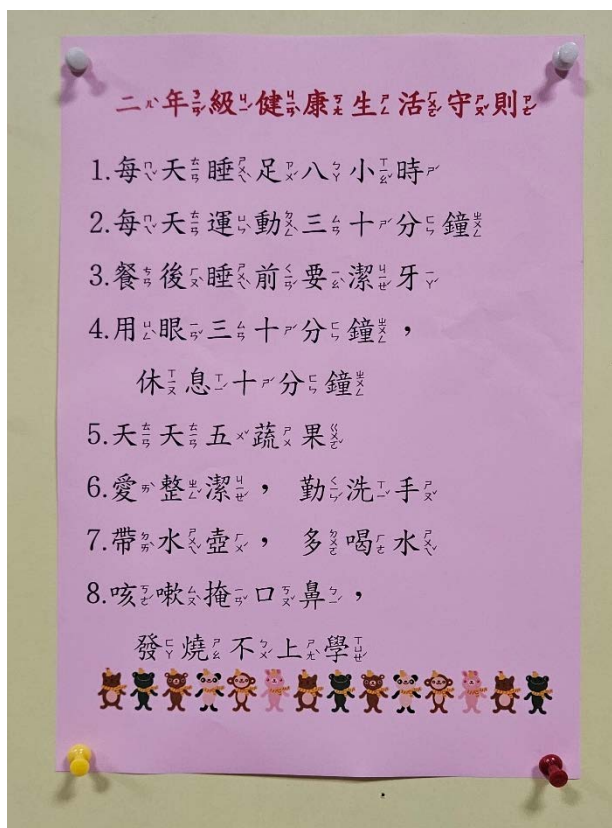 二年級健康生活守則
1.每天睡足八小時
2.每天運動三十分鐘
3.餐後睡前要潔牙
4.用眼三十分鐘，
休息十分鐘
5.天天五蔬果
6.愛整潔，勤洗手
7.帶水壺，多喝水
8.咳嗽掩口鼻，
發燒不上學